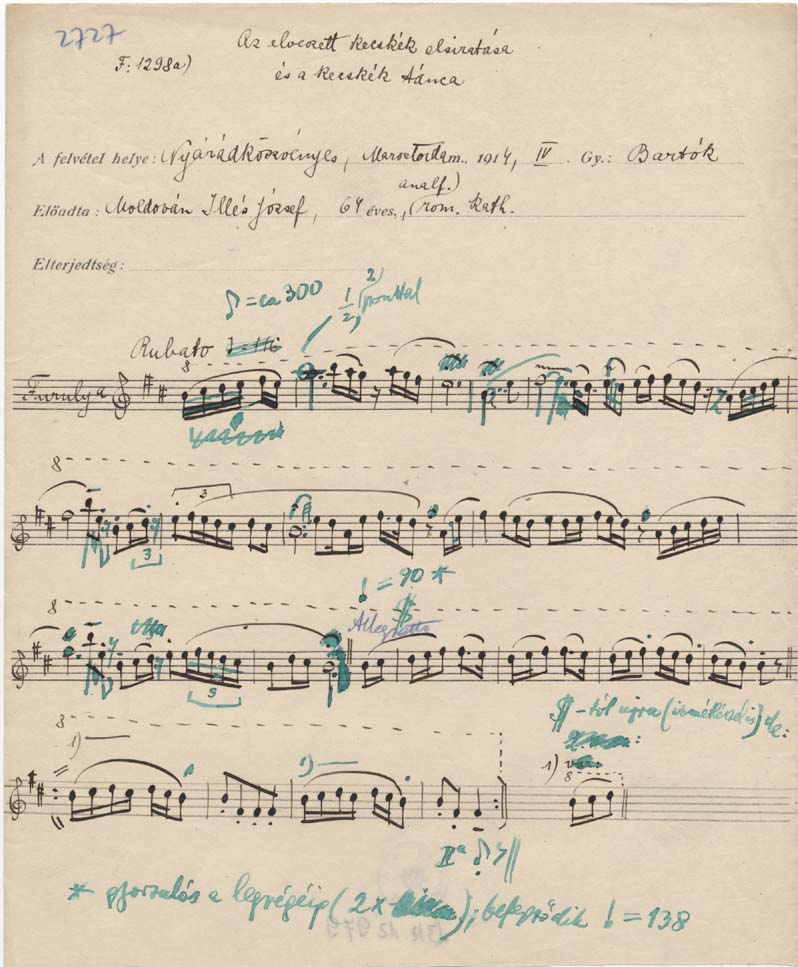 2727
Az elveszett kecskék elsiratása
F: 1298a)
és a kecskék tánca
A felvétel helye: Nyárádköszvényes, Marostorda m., 1914, IV. Gy.: Bartók
analf.)
Előadta: Moldován Illés József, 64 éves, (rom. kath.
Elterjedtség:
♪ = ca 300 1/2) 2) (ponttal
Rubato
8
Furulya
8
3
3
= 90 *
8
Allegretto
3
-tól ujra (ismétlésdis) de:
8
1)
1)
1) var:
8
IIª
* gyorsulás a legvégéig (2x); befejződik = 138